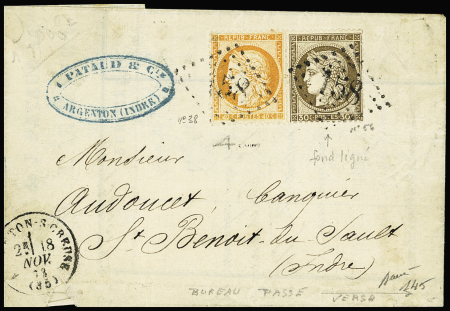 REPUB. FRANC.
REPUB. FRANC.
J. PATAUD & Cie
ARGENTON (INDRE)
POSTES
30 30
n° 38
n° 56
fond ligné
Monsieur
Audoucet, Banquier
St Benoit-du-Sault
(Indre)
TON-S-CREUSE
18
NOV
(35)
BUREAU PASSE VERSO
145